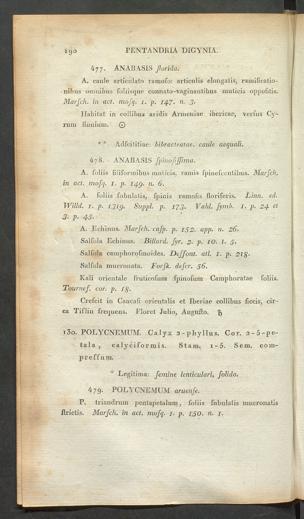 190 PENTANDRIA DIGYNIA.
477. ANABASIS florida.
A. caule articulato ramoso: articulis elongatis, ramificatio-
nibus omnibus foliisque connato-vaginantibus muticis oppositis.
Marsch. in act. mosq. 1. p. 147. n. 3.
Habitat in collibus aridis Armeniae ibericae, versus Cy-
rum fluvium. ☉
** Adscititiae: bibracteatae. caule aequali.
478. ANABASIS spinosissima.
A. foliis filiformibus muticis, ramis spinescentibus. Marsch.
in act. mosq. 1. p. 149. n. 6.
A. foliis subulatis, spinis ramosis floriferis. Linn. ed.
Willd. 1. p. 1319. Suppl. p. 173. Vahl. symb. 1. p. 24 et
3. p. 45.
A. Echinus. Marsch. casp. p. 152. app. n. 26.
Salsola Echinus. Billard. syr. 2. p. 10. t. 5.
Salsola camphorosmoides. Desfont. atl. 1. p. 218.
Salsola mucronata. Forsk. descr. 56.
Kali orientale fruticosum spinosum Camphoratae foliis.
Tournef. cor. p. 18.
Crescit in Caucasi orientalis et Iberiae collibus siccis, cir-
ca Tiflin frequens. Floret Julio, Augusto. ♄
130. POLYCNEMUM. Calyx 2-phyllus. Cor. 2-5-pe-
tala, calyciformis. Stam. 1-5. Sem. com-
pressum.
* Legitima: semine lenticulari, solido.
479. POLYCNEMUM arvense.
P. triandrum pentapetalum, foliis subulatis mucronatis
strictis. Marsch. in act. mosq. 1. p. 150. n. 1.